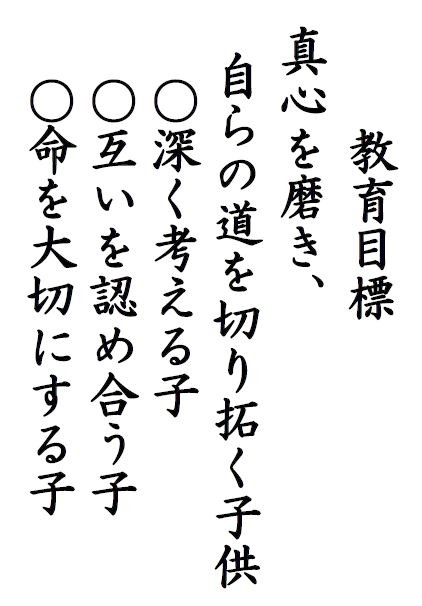 教育目標
真心を磨き、
自らの道を切り拓く子供
○深く考える子
○互いを認め合う子
○命を大切にする子